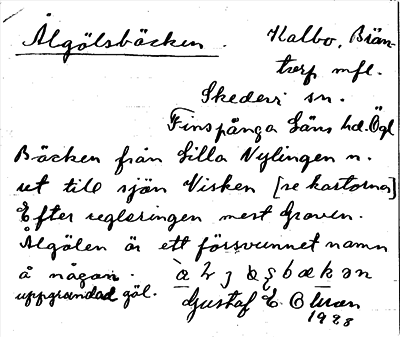 Ålgölsbäcken.
Kalbo, Brän-
torp mfl.
Skedevi sn.
Finspånga Läns hd. Ögl
Bäcken från Lilla Nylingen n.
ut till sjön Visken [se kartorna]
Efter regleringen mest Graven.
Ålgölen är ett försvunnet namn
å någon
uppgrundad göl.
Gustaf E.
1928